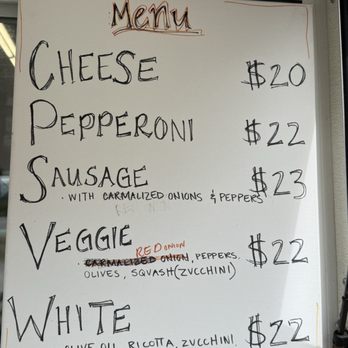 Menu
CHEESE $20
PEPPERONI $22
SAUSAGE $23
· WITH CARMALIZED ONIONS & PEPPERS
VEGGIE $22
RED ONION
· CARMALIZED ONION, PEPPERS.
OLIVES, SQUASH (ZUCCHINI)
WHITE $22
OLIVE OIL, RICOTTA, ZUCCHINI,